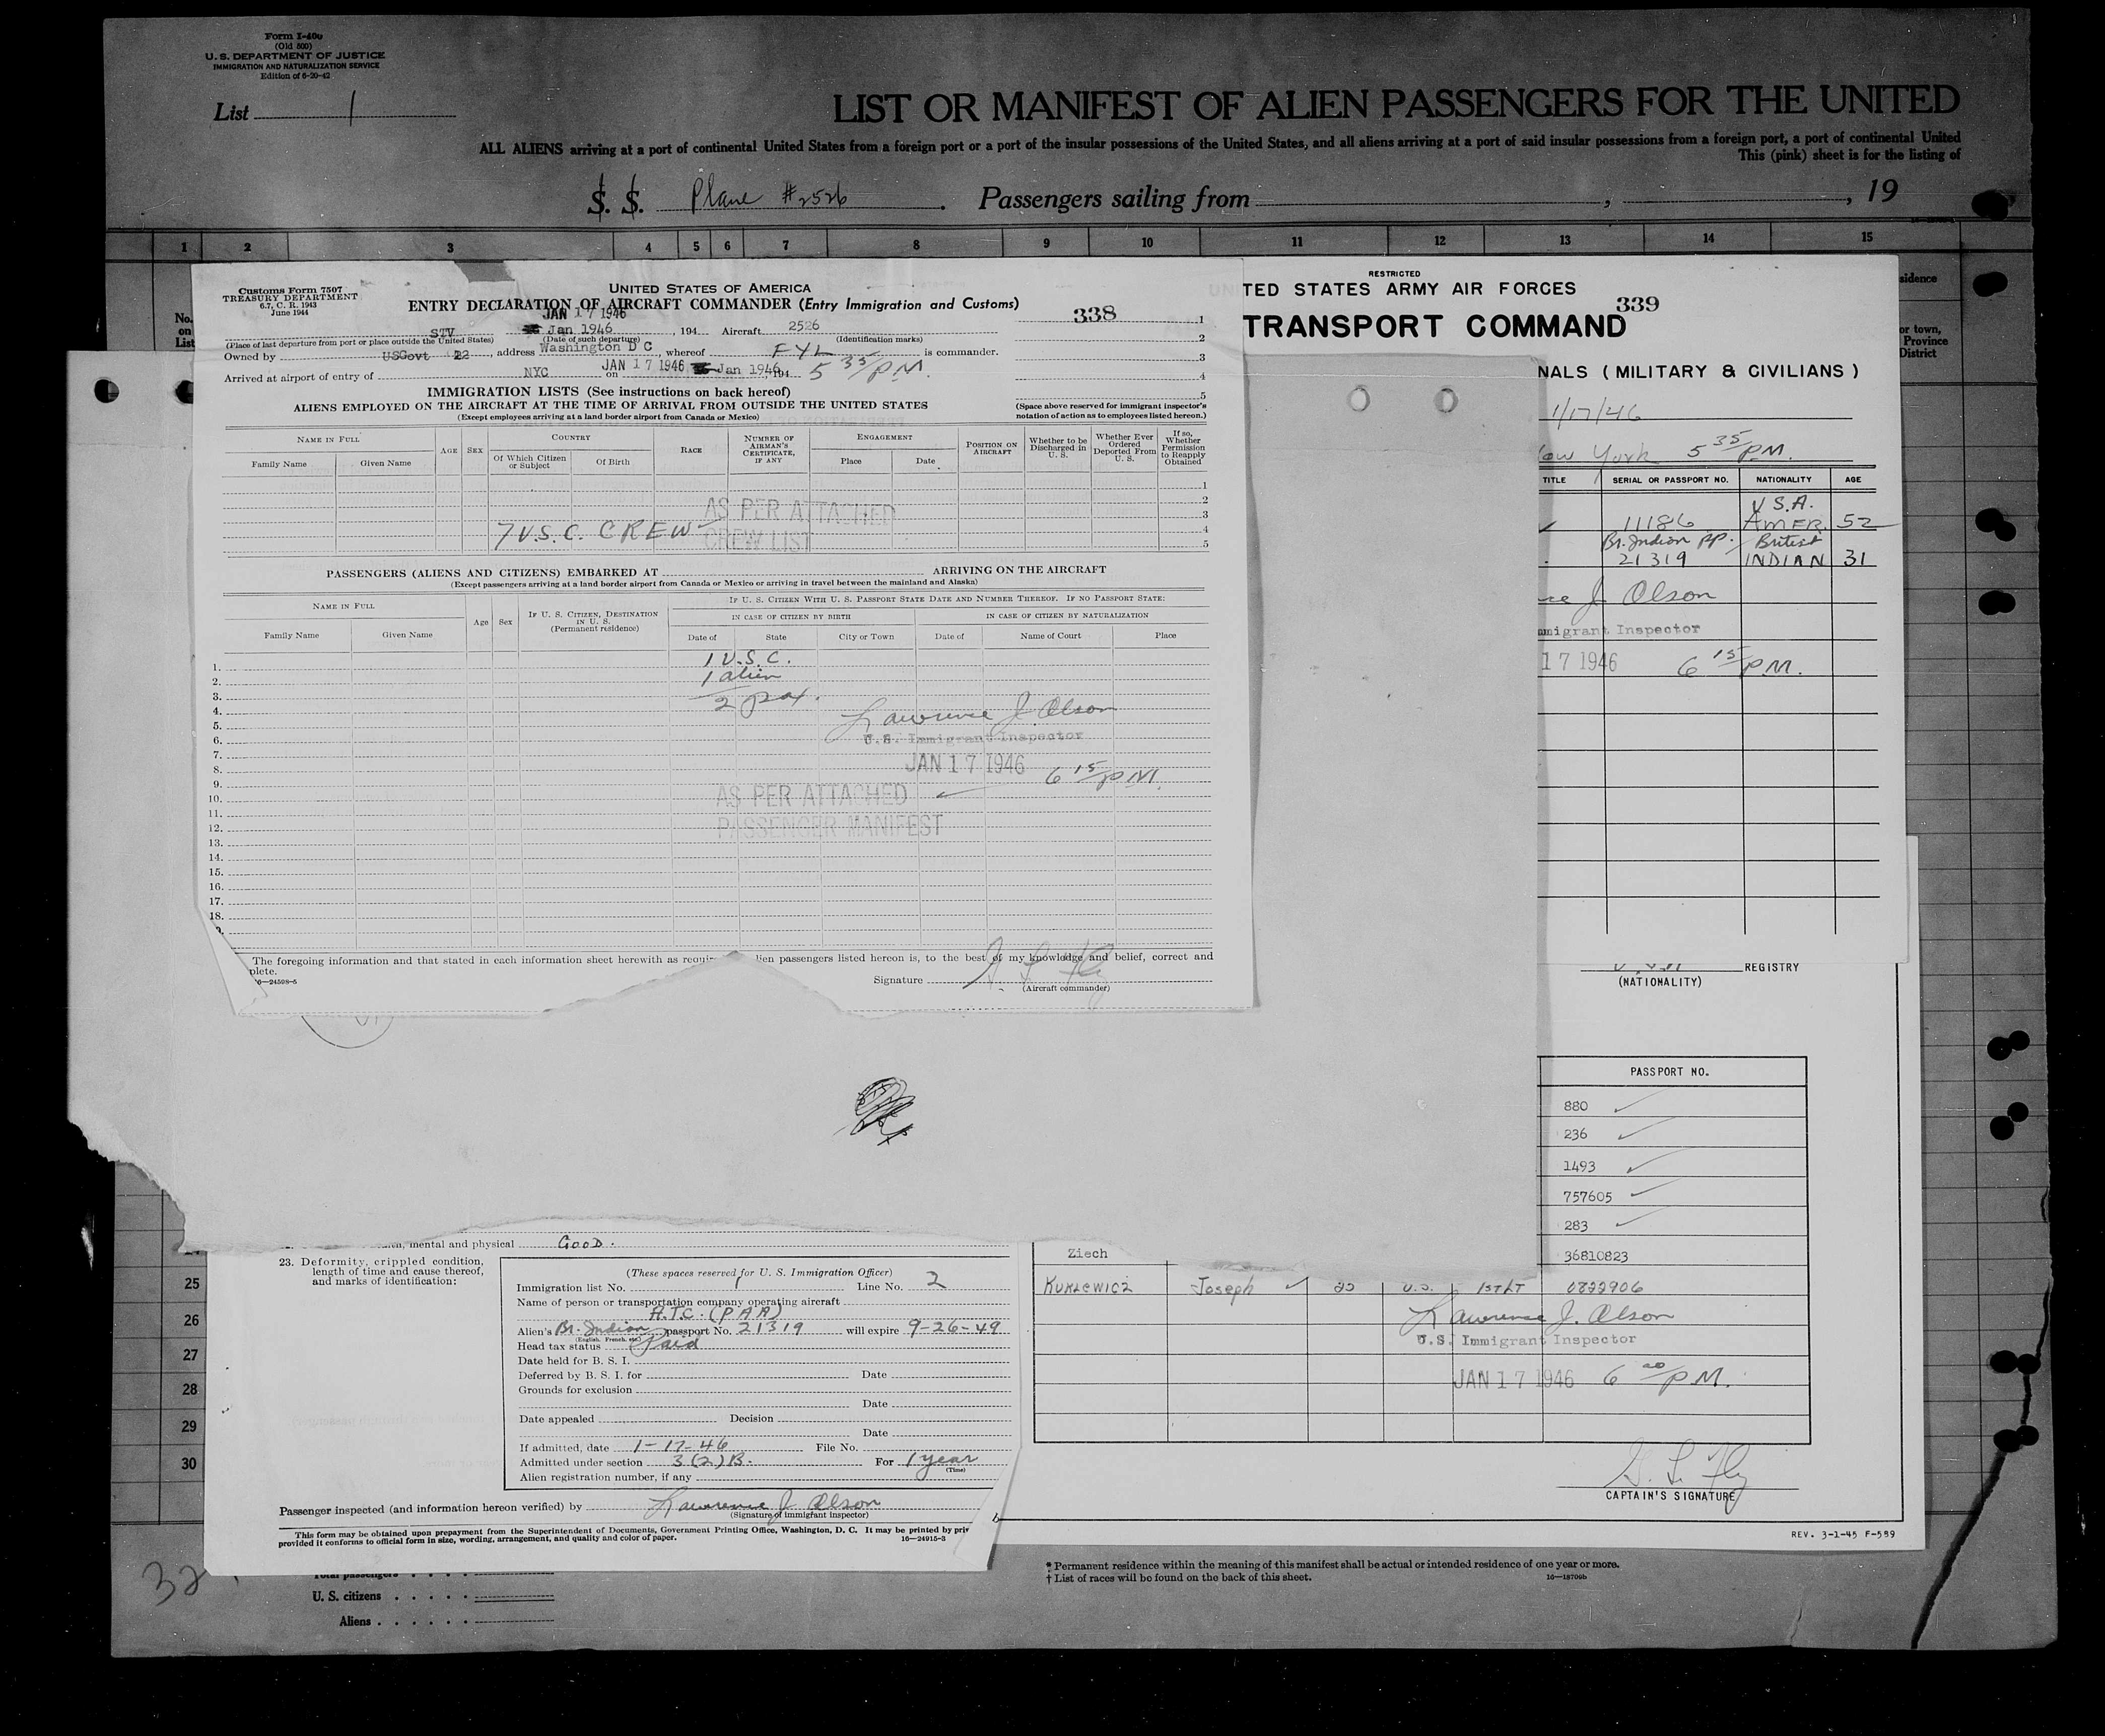 Form I-400
(Old 800)
U. S. DEPARTMENT OF JUSTICE
IMMIGRATION AND NATURALIZATION SERVICE
Edition of 6-20-42
List 1
LIST OR MANIFEST OF ALIEN PASSENGERS FOR THE UNITED
ALL ALIENS arriving at a port of continental United States from a foreign port or a port of the insular possessions of the United States, and all aliens arriving at a port of said insular possessions from a foreign port, a port of continental United
This (pink) sheet is for the listing of
S. S. Plane #2526. Passengers sailing from , , 19
1 2 3 4 5 6 7 8 9 10 11 12 13 14 15
No.
on
List
sidence
or town,
Province
District
Customs Form 7507
TREASURY DEPARTMENT
6.7, C. R. 1943
June 1944
UNITED STATES OF AMERICA
ENTRY DECLARATION OF AIRCRAFT COMMANDER (Entry Immigration and Customs)
338
JAN 17 1946
STV Jan 1946, 194 Aircraft 2526
(Place of last departure from port or place outside the United States) (Date of such departure) (Identification marks)
Owned by USGovt 22, address Washington D C, whereof FYL is commander.
Arrived at airport of entry of NYC on JAN 17 1946 Jan 1946, 194 5 35/PM.
1
2
3
4
5
IMMIGRATION LISTS (See instructions on back hereof)
ALIENS EMPLOYED ON THE AIRCRAFT AT THE TIME OF ARRIVAL FROM OUTSIDE THE UNITED STATES
(Except employees arriving at a land border airport from Canada or Mexico)
(Space above reserved for immigrant inspector's
notation of action as to employees listed hereon.)
NAME IN FULL
Family Name Given Name
AGE SEX
COUNTRY
Of Which Citizen or Subject Of Birth
RACE
NUMBER OF AIRMAN'S CERTIFICATE, IF ANY
ENGAGEMENT
Place Date
POSITION ON AIRCRAFT
Whether to be Discharged in U. S.
Whether Ever Ordered Deported From U. S.
If so, Whether Permission to Reapply Obtained
1
2
3
4
5
7 U.S.C. CREW
AS PER ATTACHED
CREW LIST
PASSENGERS (ALIENS AND CITIZENS) EMBARKED AT ARRIVING ON THE AIRCRAFT
(Except passengers arriving at a land border airport from Canada or Mexico or arriving in travel between the mainland and Alaska)
NAME IN FULL
Family Name Given Name
Age Sex
IF U. S. CITIZEN, DESTINATION IN U. S. (Permanent residence)
IF U. S. CITIZEN WITH U. S. PASSPORT STATE DATE AND NUMBER THEREOF. IF NO PASSPORT STATE:
IN CASE OF CITIZEN BY BIRTH IN CASE OF CITIZEN BY NATURALIZATION
Date of State City or Town Date of Name of Court Place
1.
2.
3.
4.
5.
6.
7.
8.
9.
10.
11.
12.
13.
14.
15.
16.
17.
18.
1 U.S.C.
1 alien
2 pax.
Lawrence J. Olson
U.S. Immigrant Inspector
JAN 17 1946 6 15/PM.
AS PER ATTACHED
PASSENGER MANIFEST
The foregoing information and that stated in each information sheet herewith as requir lien passengers listed hereon is, to the best of my knowledge and belief, correct and
plete.
16—24598-5
Signature
(Aircraft commander)
RESTRICTED
TED STATES ARMY AIR FORCES
339
TRANSPORT COMMAND
NALS (MILITARY & CIVILIANS)
1/17/46
York 5 35/PM.
TITLE SERIAL OR PASSPORT NO. NATIONALITY AGE
U.S.A.
11186 AMER. 52
Br. Indian pp. British
21319 INDIAN 31
ce J Olson
mmigrant Inspector
17 1946 6 15/PM.
REGISTRY
(NATIONALITY)
PASSPORT NO.
880
236
1493
757605
283
Ziech 36810823
KUKLEWICZ Joseph U.S. 1ST LT 0822906
Lawrence J. Olson
U.S. Immigrant Inspector
JAN 17 1946 6 20/PM.
CAPTAIN'S SIGNATURE
REV. 3-1-45 F-589
mental and physical GOOD.
23. Deformity, crippled condition,
length of time and cause thereof,
and marks of identification:
(These spaces reserved for U. S. Immigration Officer)
Immigration list No. 1 Line No. 2
Name of person or transportation company operating aircraft
A.T.C. (PAA)
Alien's Br. Indian passport No. 21319 will expire 9-26-49
(English, French, etc.)
Head tax status Paid
Date held for B. S. I.
Deferred by B. S. I. for Date
Grounds for exclusion
Date
Date appealed Decision
Date
If admitted, date 1-17-46 File No.
Admitted under section 3(2)B. For 1 year
(Time)
Alien registration number, if any
Passenger inspected (and information hereon verified) by Lawrence J Olson
(Signature of immigrant inspector)
This form may be obtained upon prepayment from the Superintendent of Documents, Government Printing Office, Washington, D. C. It may be printed by priv
provided it conforms to official form in size, wording, arrangement, and quality and color of paper. 16—24915-3
25
26
27
28
29
30
32
Total passengers
U. S. citizens
Aliens
* Permanent residence within the meaning of this manifest shall be actual or intended residence of one year or more.
† List of races will be found on the back of this sheet. 16—18709b